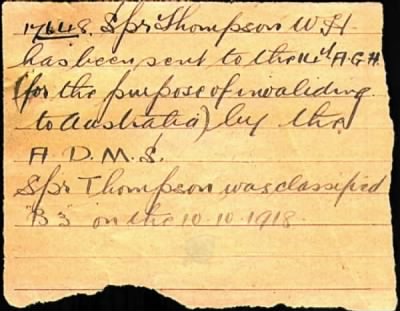 17648. Spr Thompson W H
has been sent to the 14th A.G.H.
(for the purpose of invaliding
to Australia) by the
A. D. M. S.
Spr Thompson was classified
"B3" on the 10.10.1918.